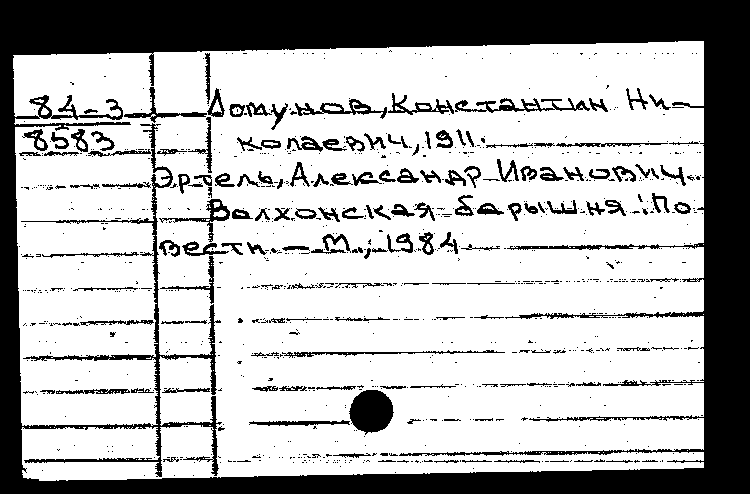 84-3
8583
Ломунов, Константин Ни-
колаевич, 1911.
Эртель, Александр Иванович.
Волхонская барышня: По-
вести. – М., 1984.